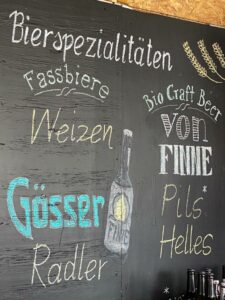 Bierspezialitäten
Fassbiere
Weizen
Gösser
Radler
Bio Craft Beer
von
FINNE
Pils*
Helles
*